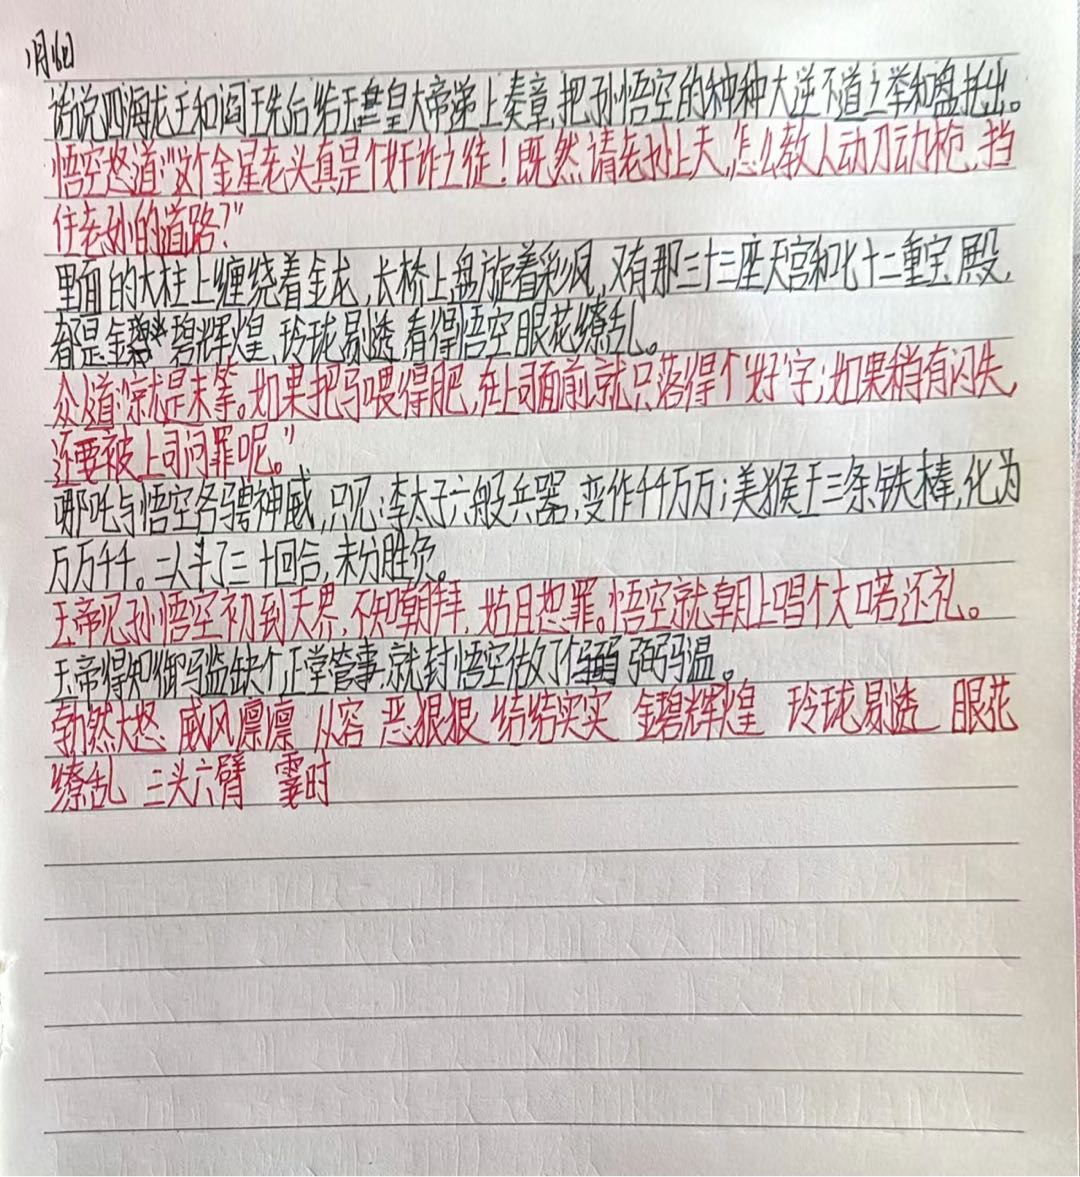 1月6日
话说四海龙王和阎王先后给玉皇大帝递上奏章,把孙悟空的种种大逆不道之举和盘托出。
悟空怒道:"这个金星老头真是个奸诈之徒!既然请老孙上天,怎么教人动刀动枪,挡
住老孙的道路?"
里面的大柱上缠绕着金龙,长桥上盘旋着彩凤,又有那三十三座天宫和七十二重宝殿,
都是金碧辉煌,玲珑剔透,看得悟空眼花缭乱。
众人道:"就是末等。如果把马喂得肥,在上司面前就只落得个"好"字;如果稍有闪失,
还要被上司问罪呢。"
哪吒与悟空各骋神威,只见:李太子六般兵器,变作千千万万;美猴王三条铁棒,化为
万万千千。二人斗了三十回合,未分胜负。
玉帝见孙悟空初到天界,不知朝拜,姑且恕罪。悟空就朝上唱个大喏还礼。
玉帝得知御马监缺个正堂管事,就封悟空做了个弼马温。
勃然大怒 威风凛凛 从容 恶狠狠 结结实实 金碧辉煌 玲珑剔透 眼花
缭乱 三头六臂 霎时